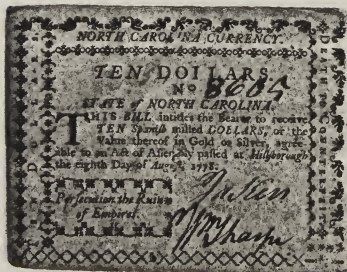 NORTH CAROLINA CURRENCY.
TEN DOLLARS.
No 8605
STATE of NORTH CAROLINA.
THIS BILL intitles the Bearer to receive
TEN Spanish milled DOLLARS, or the
Value thereof in Gold or Silver, agree-
able to an Act of Assembly passed at Hillsborough
the eighth Day of Aug. 1778.
Persecution the Ruin
of Empires.